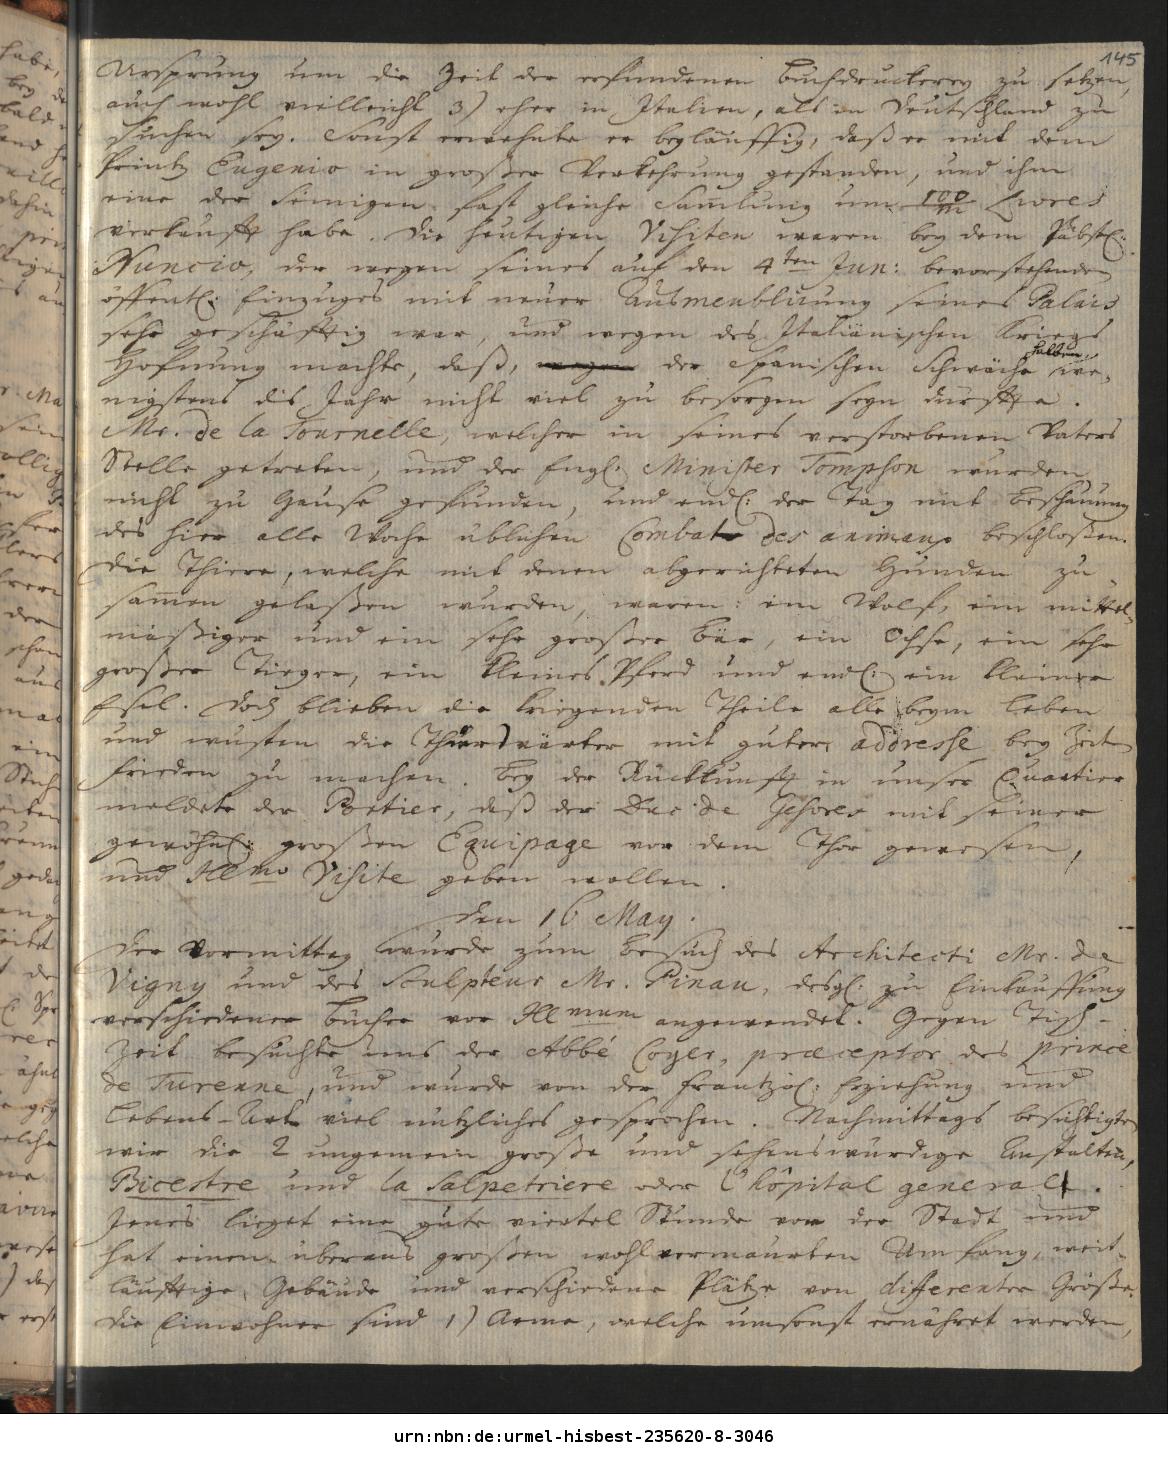 145
Ursprung um die Zeit der erfundenen Buchdruckerey zu setzen,
auch wohl vielleicht 3) eher in Italien, als in Deutschland zu
suchen sey. Sonst erwehnte er beyläuffig, daß er mit dem
Printz Eugenio in großer Verkehrung gestanden, und ihm
eine der seinigen fast gleiche Samlung um 100/m Livres
verkaufft habe. Die heutigen Visiten waren bey dem Päbstl:
Nuncio, der wegen seines auf den 4ten Jun: bevorstehenden
öffentl: Einzuges mit neuer Ausmeublirung seines Palais
sehr geschäfftig war, und wegen des Italiänischen Kriegs
Hofnung machte, daß, wegen der Spanischen Schwäche halben, we-
nigstens dis Jahr nicht viel zu besorgen seyn dürffte.
Mr. de la Tournelle, welcher in seines verstorbenen Vaters
Stelle getreten, und der Engl. Minister Tompson wurden
nicht zu Hause gefunden, und endl: der Tag mit Beschauung
des hier alle Woche üblichen Combat des animaux beschloßen.
Die Thiere, welche mit denen abgerichteten Hunden zu-
samen gelaßen wurden, waren: ein Wolf, ein mittel-
mäßiger und ein sehr großer Bär, ein Ochse, ein sehr
großer Tieger, ein kleines Pferd und endl: ein kleiner
Esel. Doch blieben die kriegenden Theile alle beym Leben
und wusten die Thierwärter mit guter addresse bey Zeiten
Frieden zu machen. Bey der Rückkunfft in unser Quartier
meldete der Portier, daß der Duc de Gesvres mit seiner
gewöhnl: großen Equipage vor dem Thor gewesen,
und Illmo Visite geben wollen.
Den 16 May.
Der Vormittag wurde zum Besuch des Architecti Mr. de
Vigny und des Sculpteur Mr. Pinau, desgl: zu Einkauffung
verschiedener Bücher vor Illmum angewendet. Gegen Tisch-
Zeit besuchte uns der Abbé Coyer, præceptor des Prince
de Turenne, und wurde von der Frantzös: Erziehung und
Lebens-Art viel nützliches gesprochen. Nachmittags besichtigten
wir die 2 ungemein große und sehenswürdige Anstalten,
Bicestre und la Salpetriere oder l'hôpital general.
Jenes lieget eine gute viertel Stunde von der Stadt und
hat einen überaus großen wohlvermaurten Umfang, weit-
läufftige Gebäude und verschiedene Plätze von differenter Größe.
Die Einwohner sind 1) Arme, welche umsonst ernähret werden,
urn:nbn:de:urmel-hisbest-235620-8-3046